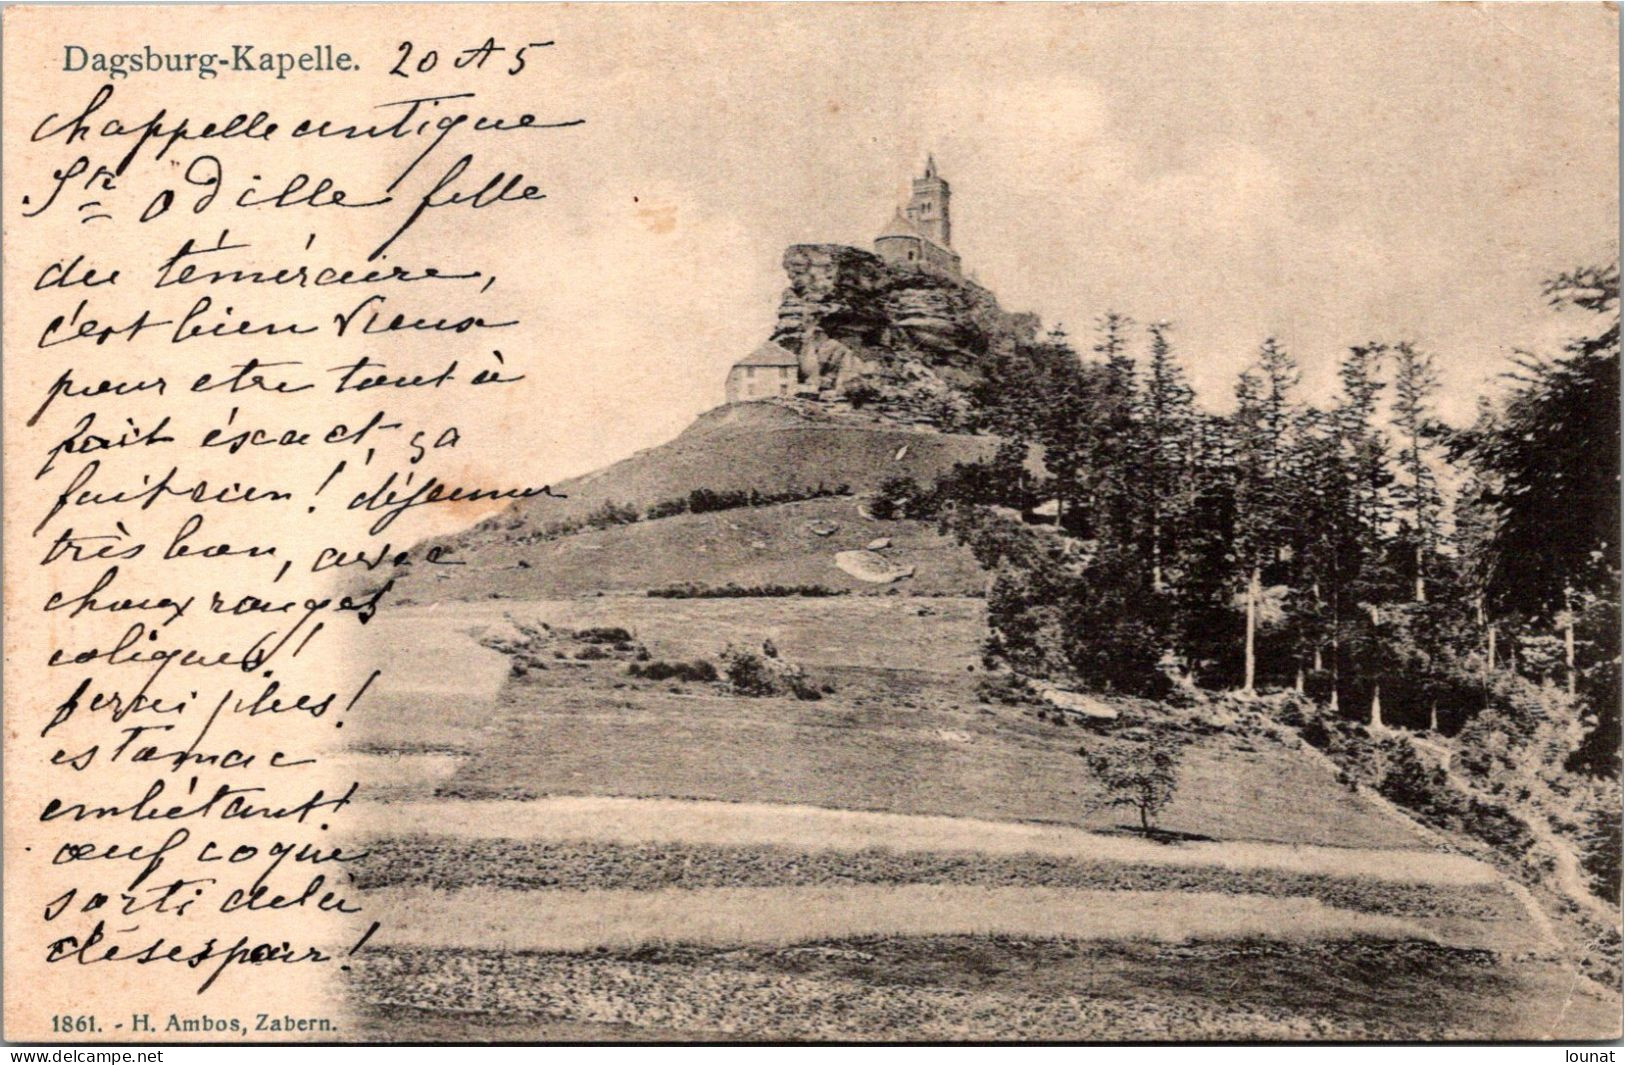 Dagsburg-Kapelle. 20 A 5
chappelle antique
Ste Odille fille
du téméraire,
c'est bien vieux
pour etre tout à
fait éxact, ça
fait rien! déjeuner
très bon, avec
choux rouges
coliques!
ferai plus!
estomac
embêtant!
œuf coque
sorti delà
désespoir!
1861. - H. Ambos, Zabern.
www.delcampe.net
lounat